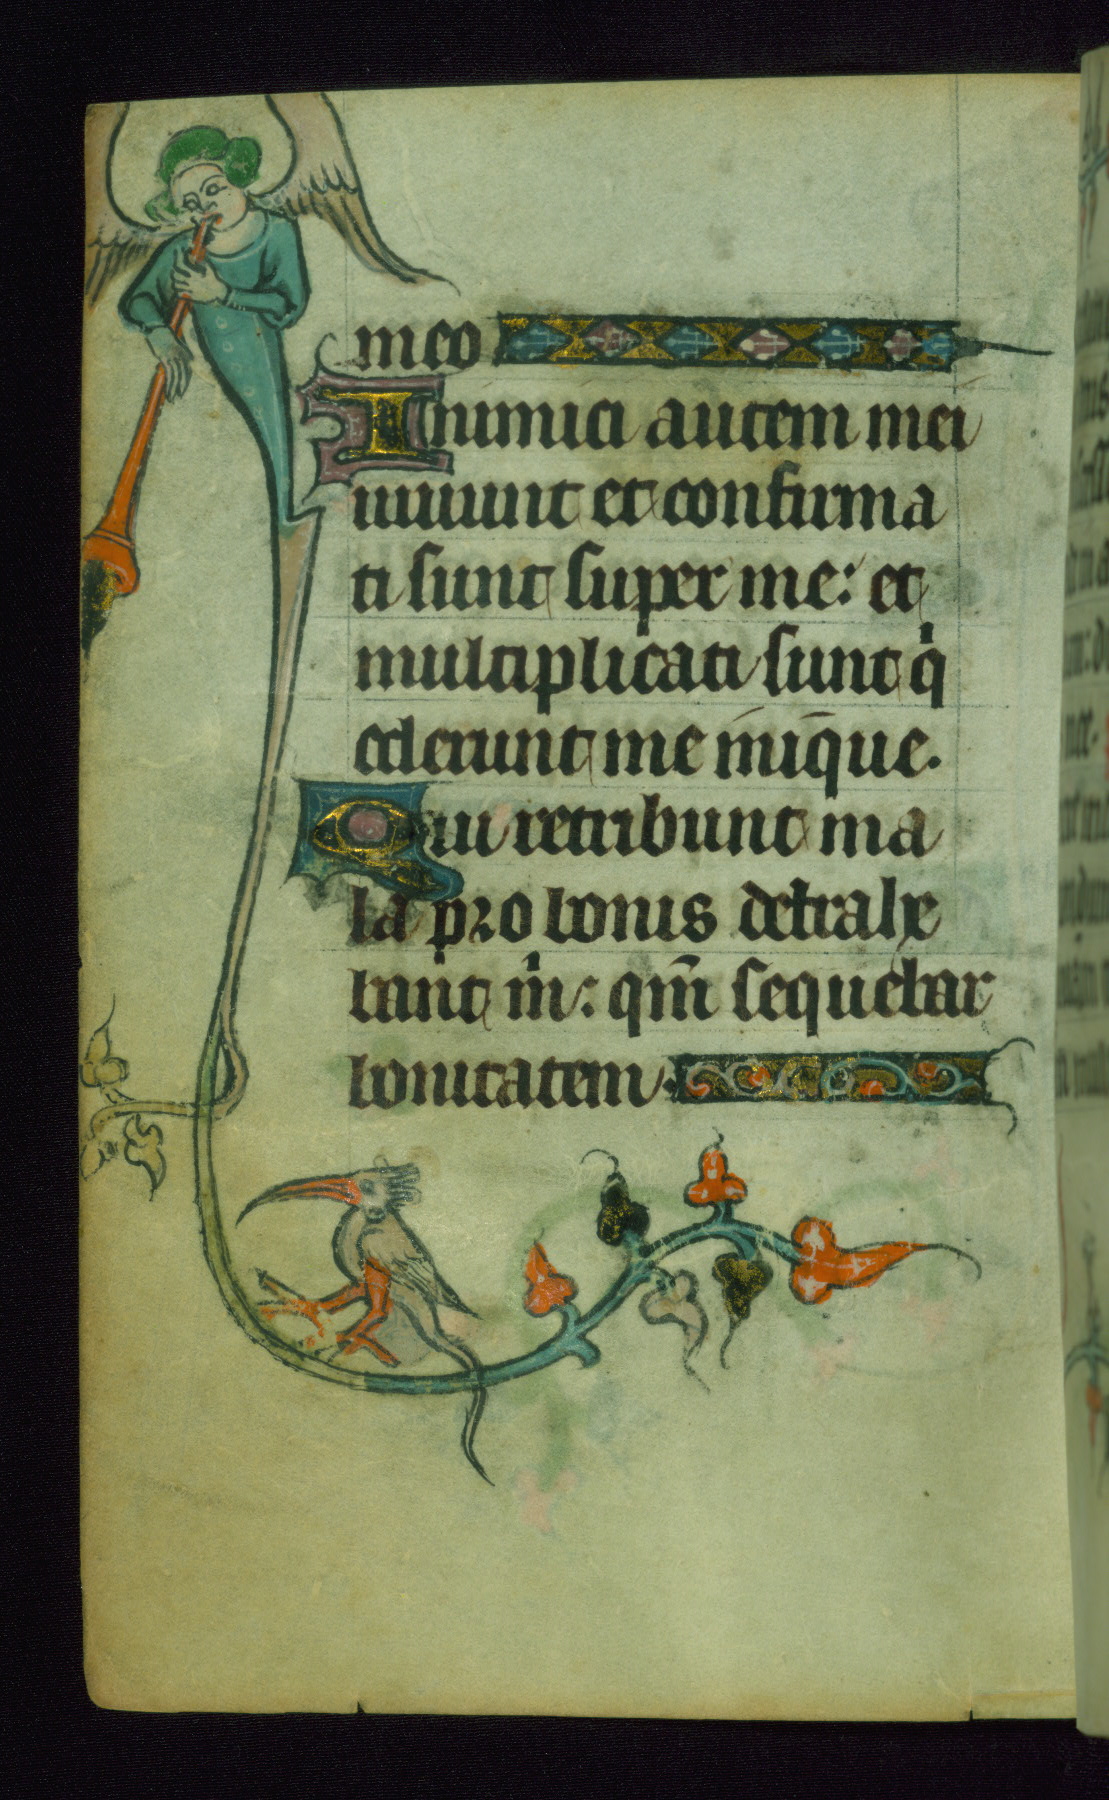 meo
Inimici autem mei
uiuunt et confirma
ti sunt super me: et
multiplicati sunt q̇
oderunt me iniq̄ue.
Qui retribunt ma
la pro bonis detrahe
bant m̊: qm̄ sequebar
bonitatem.